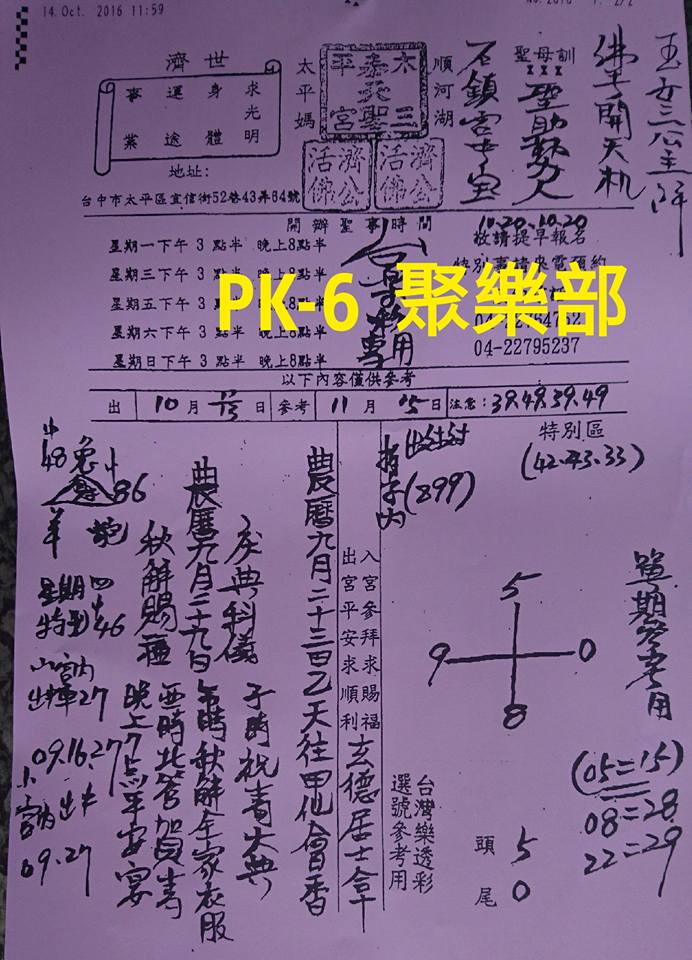 14. Oct. 2016 11:59
No. 2016 P. 2/2
玉女三公主降
佛手開天机
聖母訓
聖助執力人
順河湖
太平媽
六三
嘉天聖
平宮
濟公
活佛
濟公
活佛
濟世
求光明
身體
運途
事業
地址:
台中市太平區宜信街52巷43弄64號
開辦聖事時間
10.20.10.20
星期一下午 3 點半 晚上8點半
敬請提早報名
星期三下午 3 點半 晚上8點半
特別事請來電預約
星期五下午 3 點半 晚上8點半
星期六下午 3 點半 晚上8點半
星期日下午 3 點半 晚上8點半
04-22795237
專用
PK-6 聚樂部
以下內容僅供參考
出 10 月 日 參考 11 月 15 日 注意: 39.49.39.49
特別區
(42.43.33)
(899)
單期參考用
5
9 0
8
(05=15)
08=28
22=29
台灣樂透彩
選號參考用
頭 5
尾 0
入宮參拜求賜福
出宮平安求順利
玄德居士拿
農曆九月二十三日乙天往甲仙會香
慶典科儀
子時祝壽大典
農曆九月二十九日
午時秋解全家衣服
秋解賜福
酉時北管加員壽
晚上7点平安宴
中48 兔
中86
羊
星期四
特 中46
小宮內
出車27
09.16.27
小宮內出中
09.27